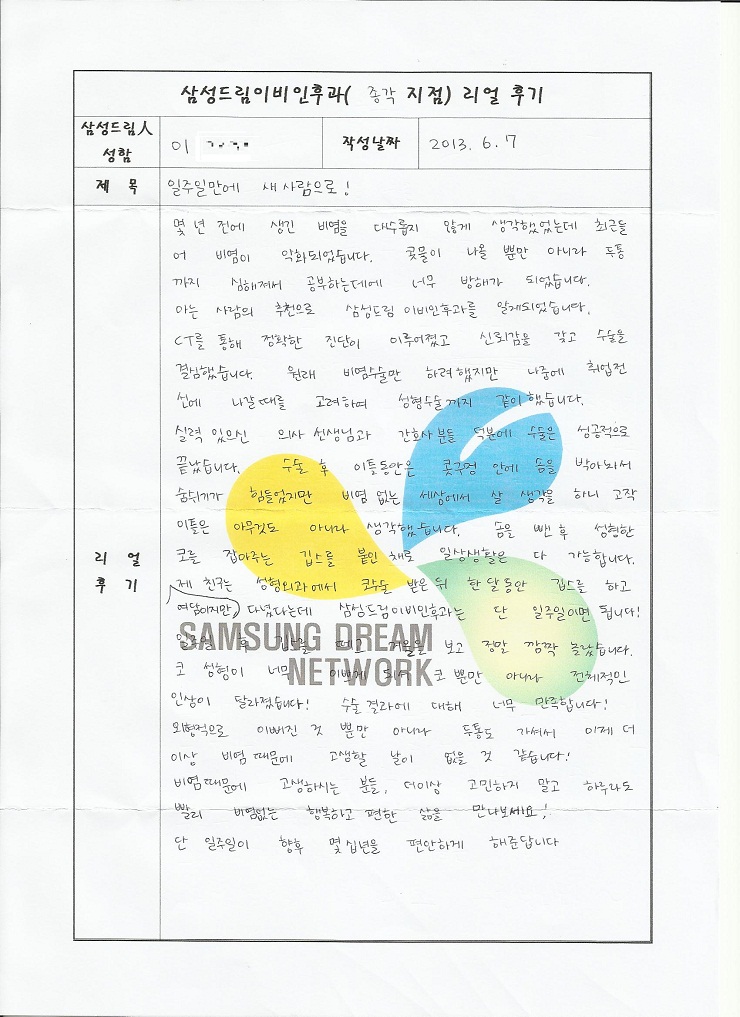 삼성드림이비인후과( 종각 지점) 리얼 후기
삼성드림人
성함
이
작성날짜
2013. 6. 7
제 목
일주일만에 새 사람으로!
리 얼
후 기
몇 년 전에 생긴 비염을 대수롭지 않게 생각했었는데 최근들
어 비염이 악화되었습니다. 콧물이 나올 뿐만 아니라 두통
까지 심해져서 공부하는데에 너무 방해가 되었습니다.
아는 사람의 추천으로 삼성드림 이비인후과를 알게되었습니다.
CT를 통해 정확한 진단이 이루어졌고 신뢰감을 갖고 수술을
결심했습니다. 원래 비염수술만 하려했지만 나중에 취업전
선에 나갈때를 고려하여 성형수술까지 같이 했습니다.
실력 있으신 의사 선생님과 간호사분들 덕분에 수술은 성공적으로
끝났습니다. 수술 후 이틀동안은 콧구멍 안에 솜을 박아놔서
숨쉬기가 힘들었지만 비염 없는 세상에서 살 생각을 하니 고작
이틀은 아무것도 아니라 생각했습니다. 솜을 뺀 후 성형한
코를 잡아주는 깁스를 붙인 채로 일상생활은 다 가능합니다.
제 친구는 성형외과에서 코수술 받은 뒤 한달동안 깁스를 하고
여담이지만, 다녔다는데 삼성드림이비인후과는 단 일주일이면 됩니다!
일주일 후 깁스를 떼고 거울을 보고 정말 깜짝 놀랐습니다.
코 성형이 너무 이쁘게 되서 코 뿐만 아니라 전체적인
인상이 달라졌습니다! 수술 결과에 대해 너무 만족합니다!
외형적으로 이뻐진 것 뿐만 아니라 두통도 가셔서 이제 더
이상 비염 때문에 고생할 날이 없을 것 같습니다!
비염때문에 고생하시는 분들, 더이상 고민하지 말고 하루라도
빨리 비염없는 행복하고 편한 삶을 만나보세요!
단 일주일이 향후 몇 십년을 편안하게 해준답니다
SAMSUNG DREAM
NETWORK